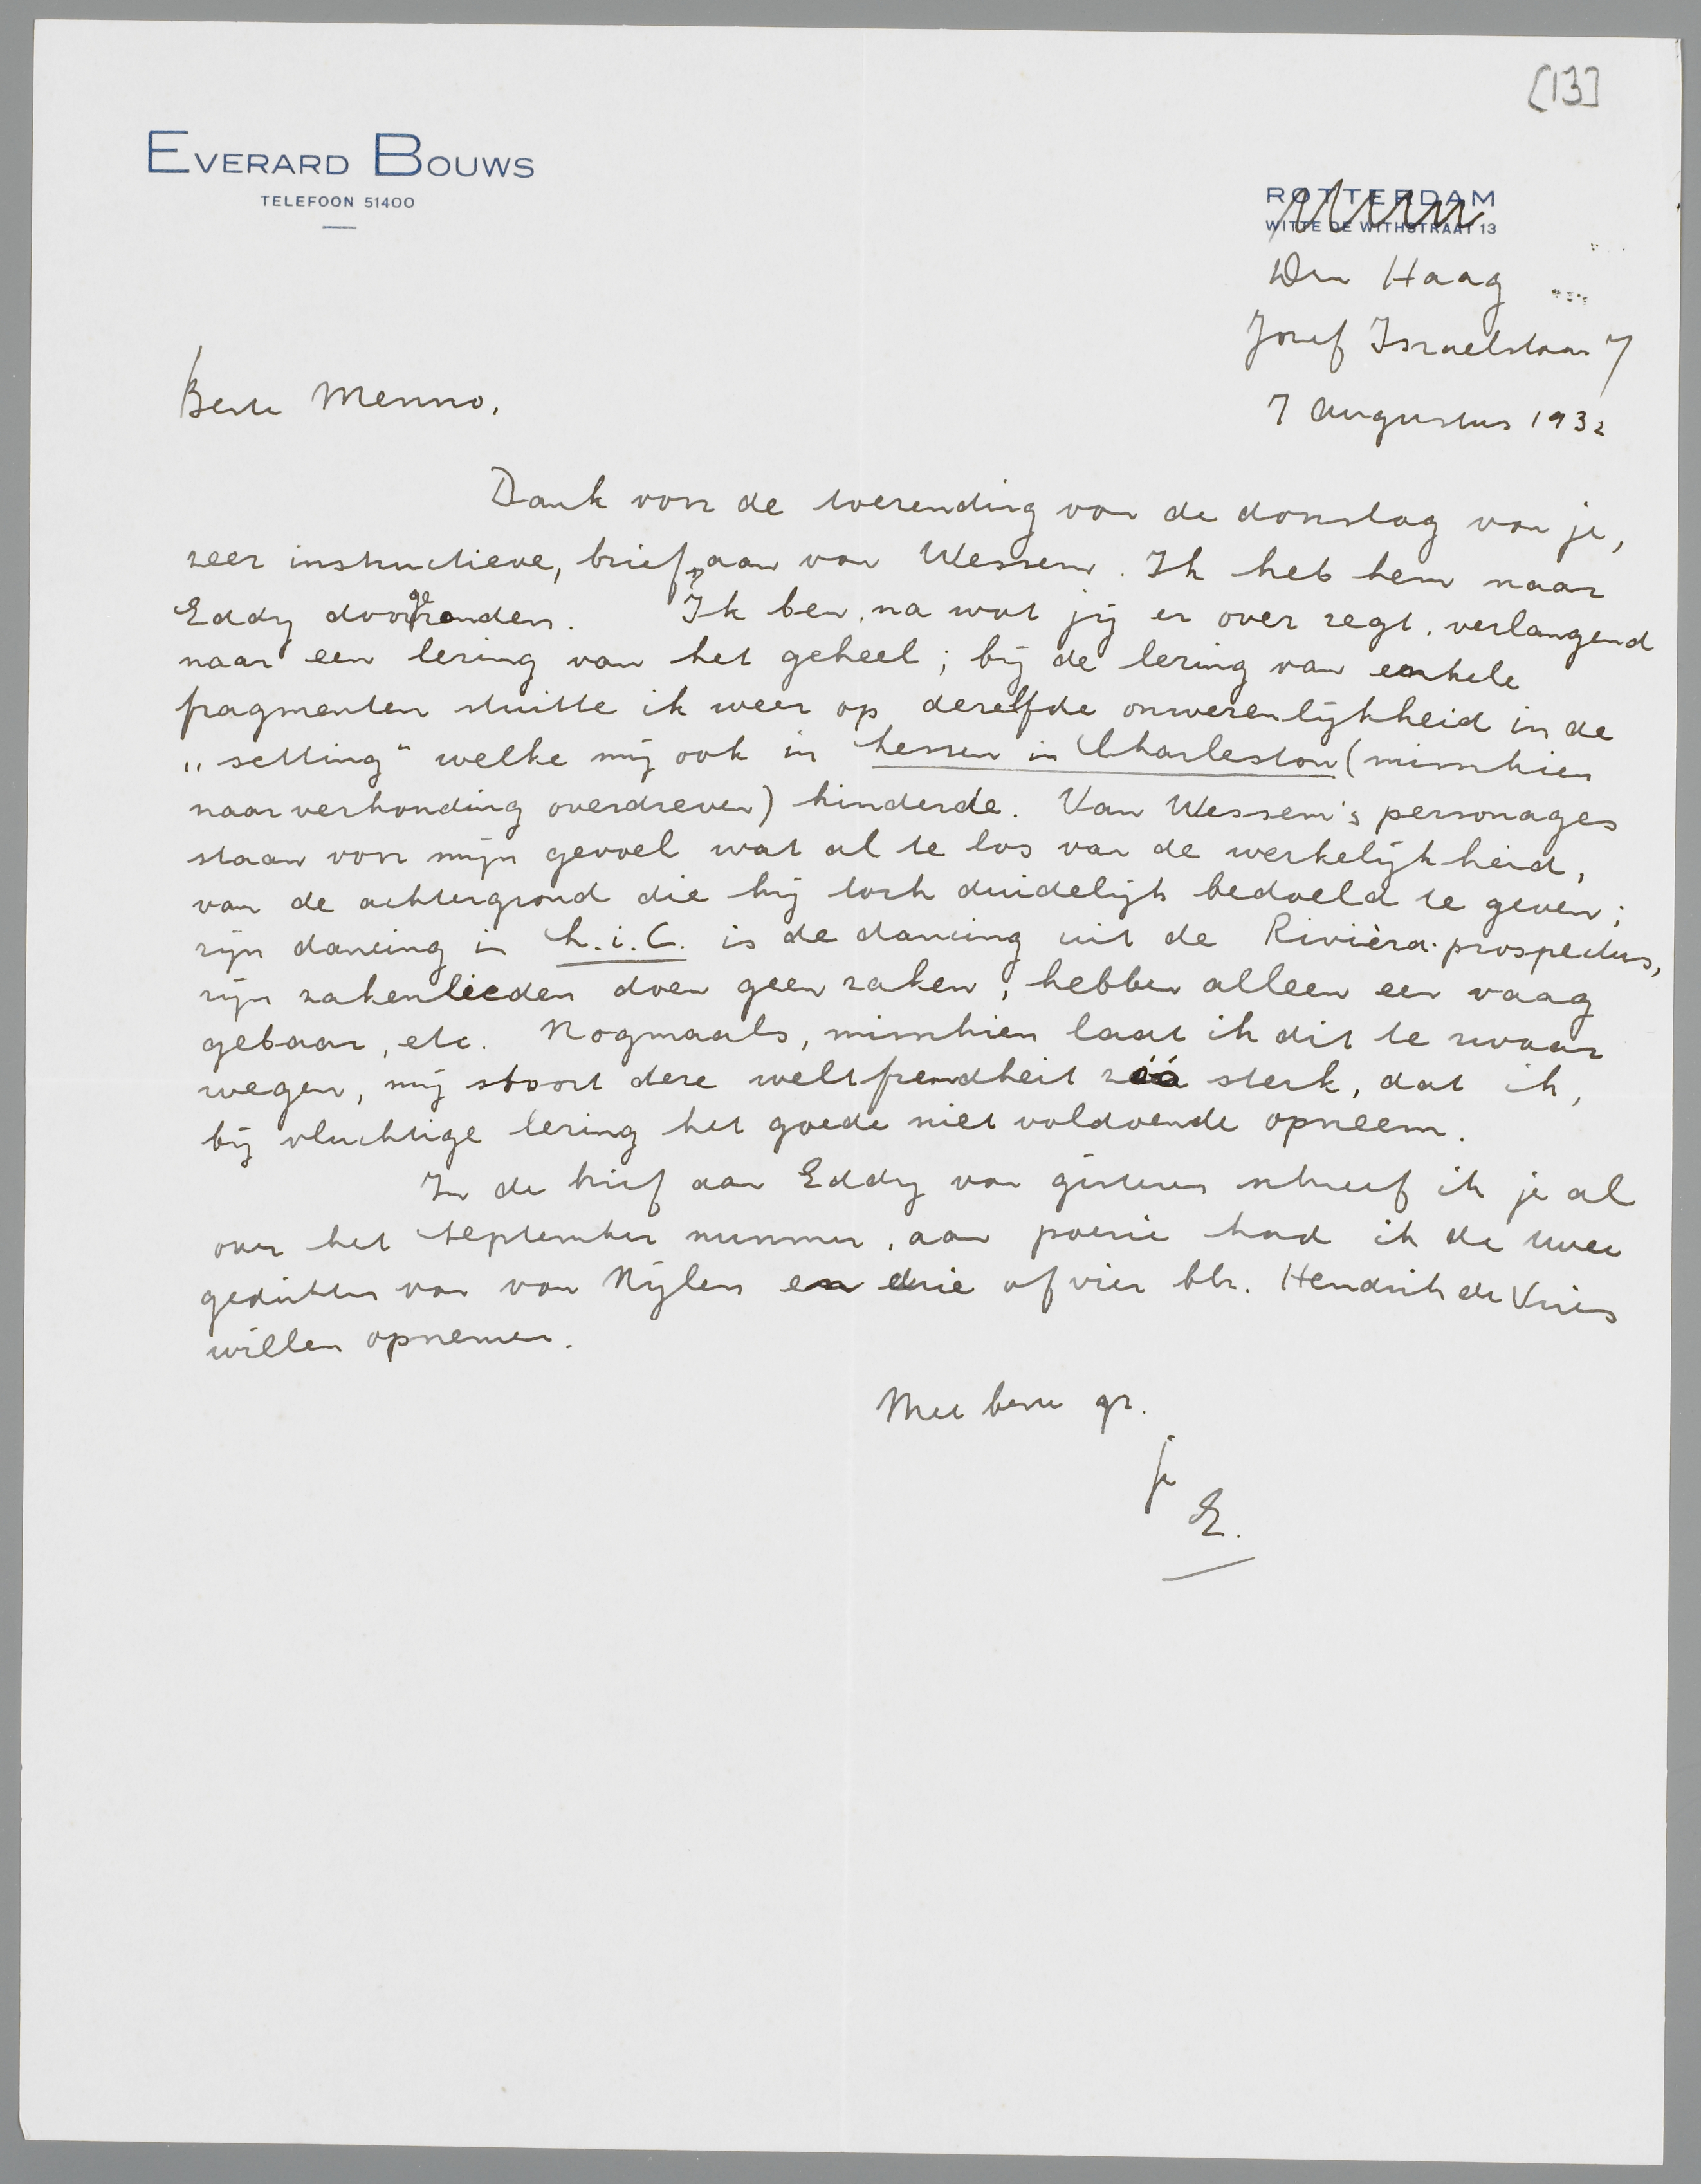 [13]
EVERARD BOUWS
TELEFOON 51400
ROTTERDAM
WITTE DE WITHSTRAAT 13
Den Haag
Josef Israelslaan 7
7 Augustus 1932
Beste Menno,
Dank voor de toezending van de doorslag van je,
zeer instructieve, brief, aan van Wessem. Ik heb hem naar
Eddy doorgezonden. Ik ben, na wat jij er over zegt, verlangend
naar een lezing van het geheel; bij de lezing van enkele
fragmenten stuitte ik weer op dezelfde onwezenlijkheid in de
„setting" welke mij ook in Lessen in Charleston (misschien
naar verhouding overdreven) hinderde. Van Wessem's personages
staan voor mijn gevoel wat al te los van de werkelijkheid,
van de achtergrond die hij toch duidelijk bedoeld te geven;
zijn dancing in L.i.C. is de dancing uit de Rivièra-prospectus,
zijn zakenlieden doen geen zaken, hebben alleen een vaag
gebaar, etc. Nogmaals, misschien laat ik dit te zwaar
wegen, mij stoort deze weltfremdheit zóó sterk, dat ik,
bij vluchtige lezing het goede niet voldoende opneem.
In de brief aan Eddy van gisteren schreef ik je al
over het September nummer, aan poezie had ik de twee
gedichten van van Nijlen en drie of vier blz. Hendrik de Vries
willen opnemen.
Met beste gr.
je
E.